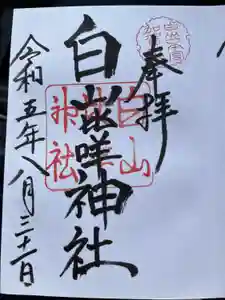 奉拝
白山比咩神社
令和五年八月三十一日
白山
神社